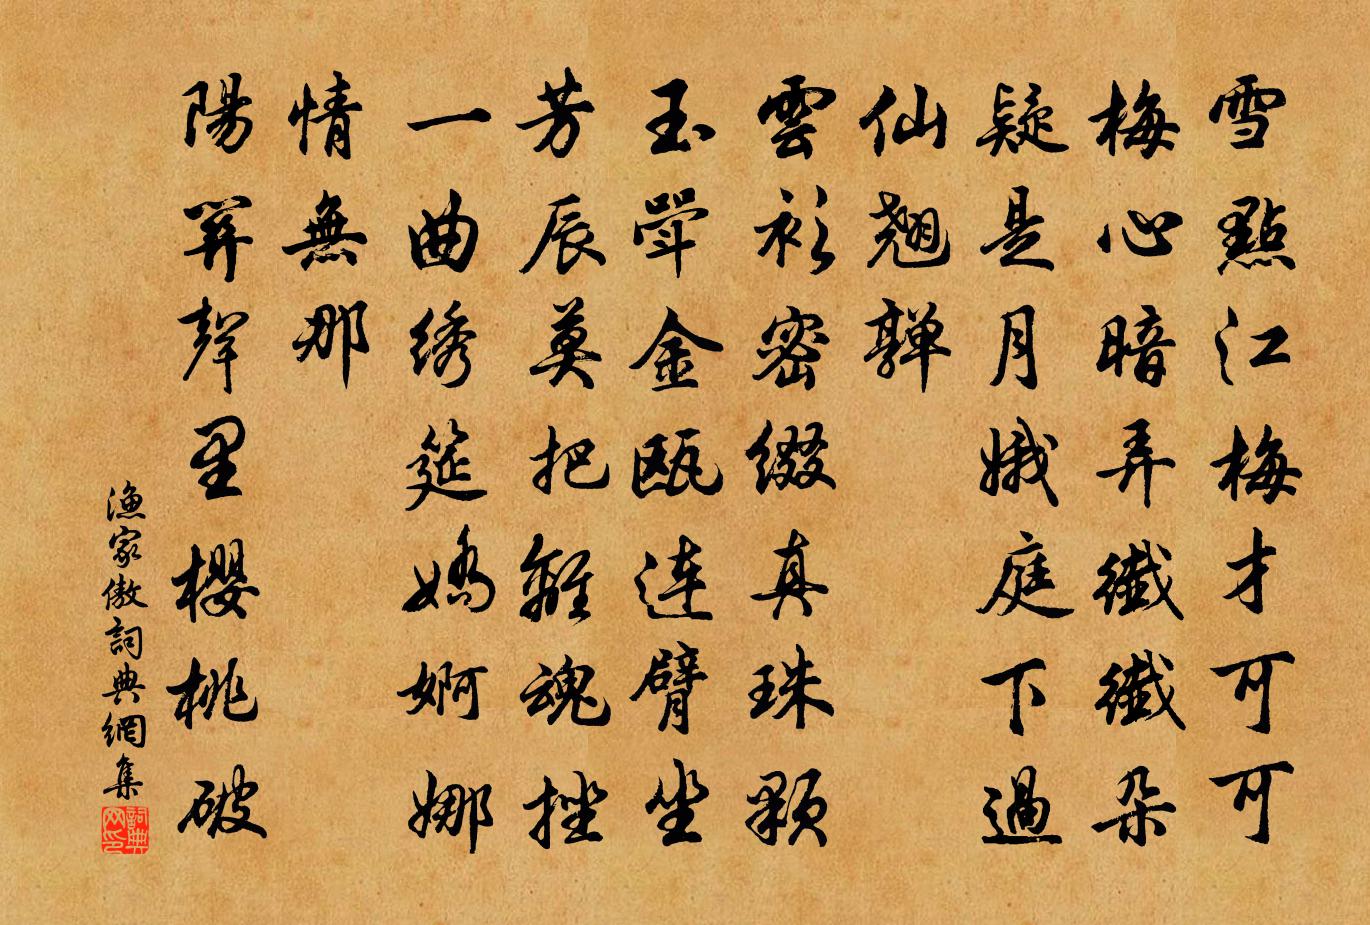 雪點江梅才可可
梅心暗弄纖纖朵
疑是月娥庭下過
仙翹嚲
雲衫密綴真珠顆
玉斝金甌連臂坐
芳辰莫把離魂挫
一曲绣筵嬌婀娜
情無那
陽關聲里櫻桃破
漁家傲詞典網集
詞典网印